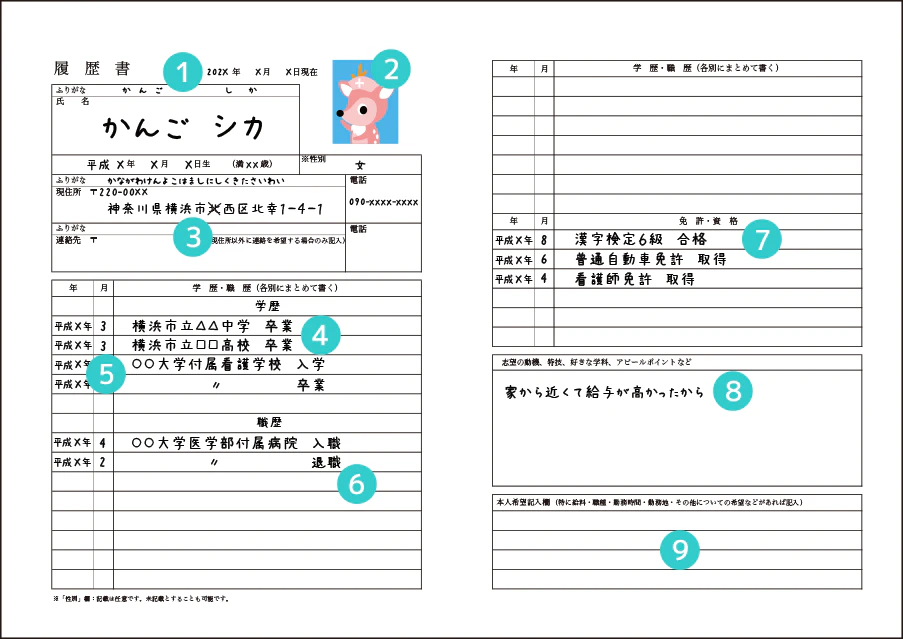 履歴書 1 202X年 X月 X日現在
2
ふりがな かんご しか
氏 名
かんご シカ
平成 X年 X月 X日生 (満XX歳)
※性別 女
ふりがな かながわけんよこはましにしくきたさいわい
電話
現住所 〒220-00XX
090-xxxx-xxxx
神奈川県横浜市西区北幸1-4-1
ふりがな
電話
連絡先 〒
3
現住所以外に連絡を希望する場合のみ記入)
年 月 学 歴・職 歴(各別にまとめて書く)
学歴
平成X年 3 横浜市立△△中学 卒業
4
平成X年 3 横浜市立□□高校 卒業
平成X年 〇〇大学付属看護学校 入学
5
平成X年 〃 卒業
職歴
平成X年 4 〇〇大学医学部付属病院 入職
平成X年 2 〃 退職
6
※「性別」欄:記載は任意です。未記載とすることも可能です。
年 月 学 歴・職 歴(各別にまとめて書く)
年 月 免 許・資 格
平成X年 8 漢字検定6級 合格
7
平成X年 6 普通自動車免許 取得
平成X年 4 看護師免許 取得
志望の動機、特技、好きな学科、アピールポイントなど
家から近くて給与が高かったから
8
本人希望記入欄(特に給料・職種・勤務時間・勤務地・その他についての希望などがあれば記入)
9